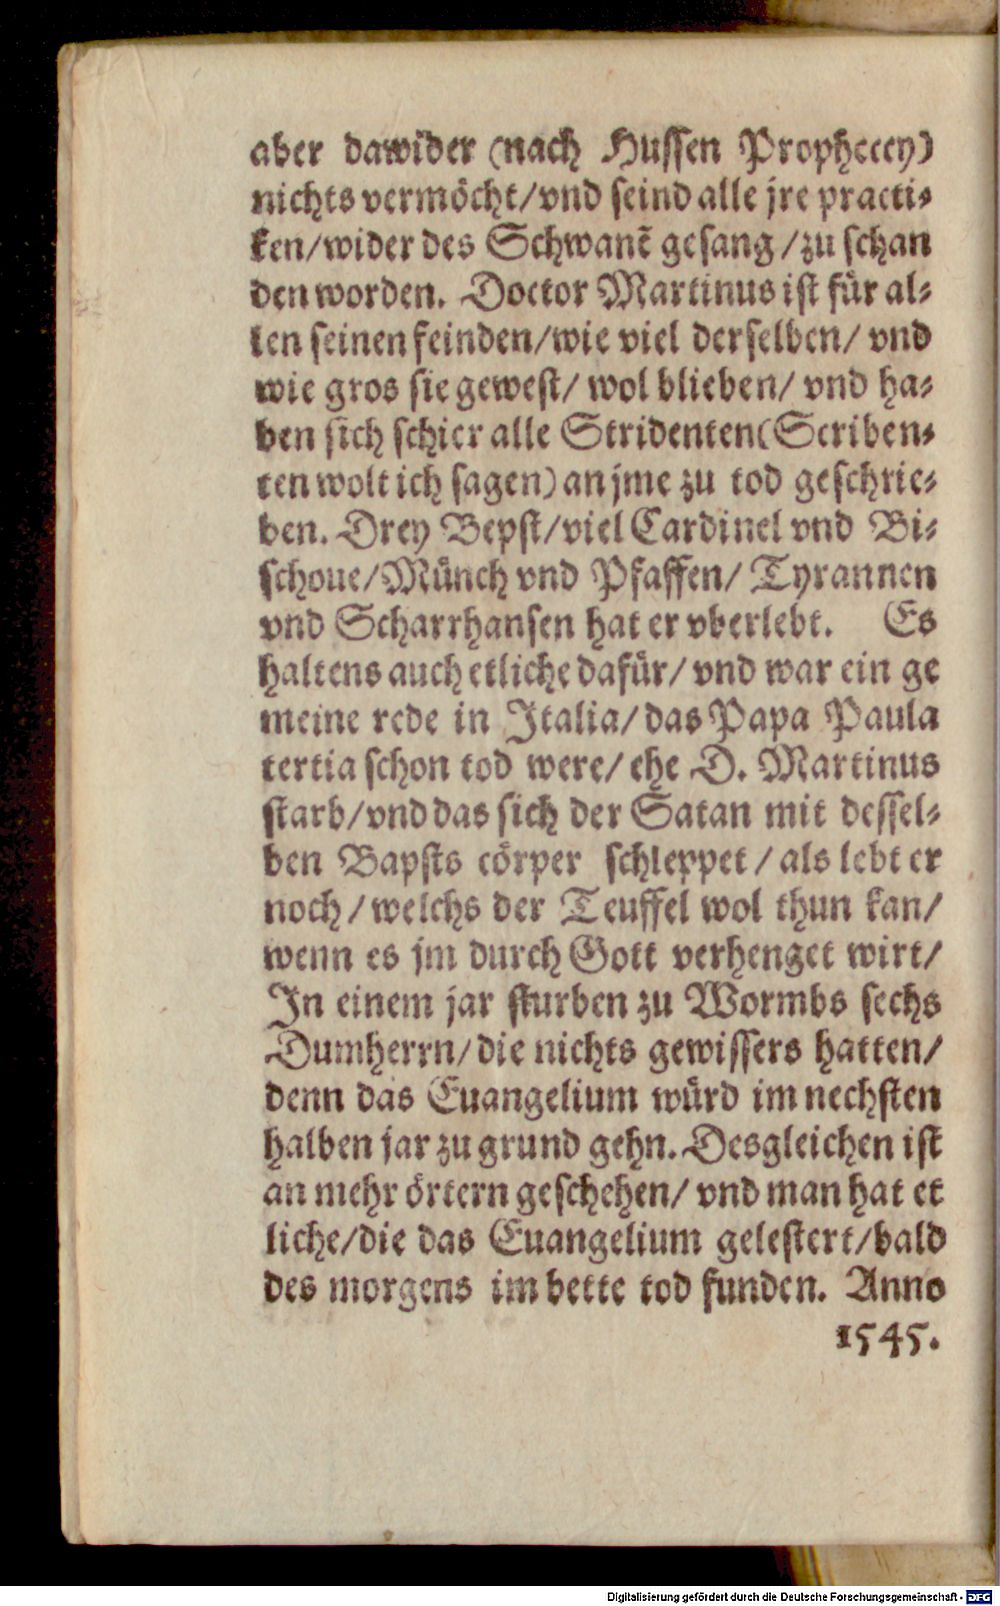 aber dawider (nach Hussen Prophecey)
nichts vermöcht/vnd seind alle jre practi-
ken/wider des Schwanẽ gesang/zu schan
den worden. Doctor Martinus ist für al-
len seinen feinden/wie viel derselben/ vnd
wie gros sie gewest/ wol blieben/ vnd ha-
ben sich schier alle Stridenten(Scriben-
ten wolt ich sagen) an jme zu tod geschrie-
ben. Drey Bepst/viel Cardinel vnd Bi-
schoue/Münch vnd Pfaffen/ Tyrannen
vnd Scharrhansen hat er vberlebt. Es
haltens auch etliche dafür/ vnd war ein ge
meine rede in Italia/das Papa Paula
tertia schon tod were/ ehe D. Martinus
starb/vnd das sich der Satan mit dessel-
ben Bapsts cörper schleppet/als lebt er
noch/welchs der Teuffel wol thun kan/
wenn es jm durch Gott verhenget wirt/
In einem jar sturben zu Wormbs sechs
Dumherrn/die nichts gewissers hatten/
denn das Euangelium würd im nechsten
halben jar zu grund gehn. Desgleichen ist
an mehr örtern geschehen/ vnd man hat et
liche/die das Euangelium gelestert/bald
des morgens im bette tod funden. Anno
1545.
Digitalisierung gefördert durch die Deutsche Forschungsgemeinschaft - DFG